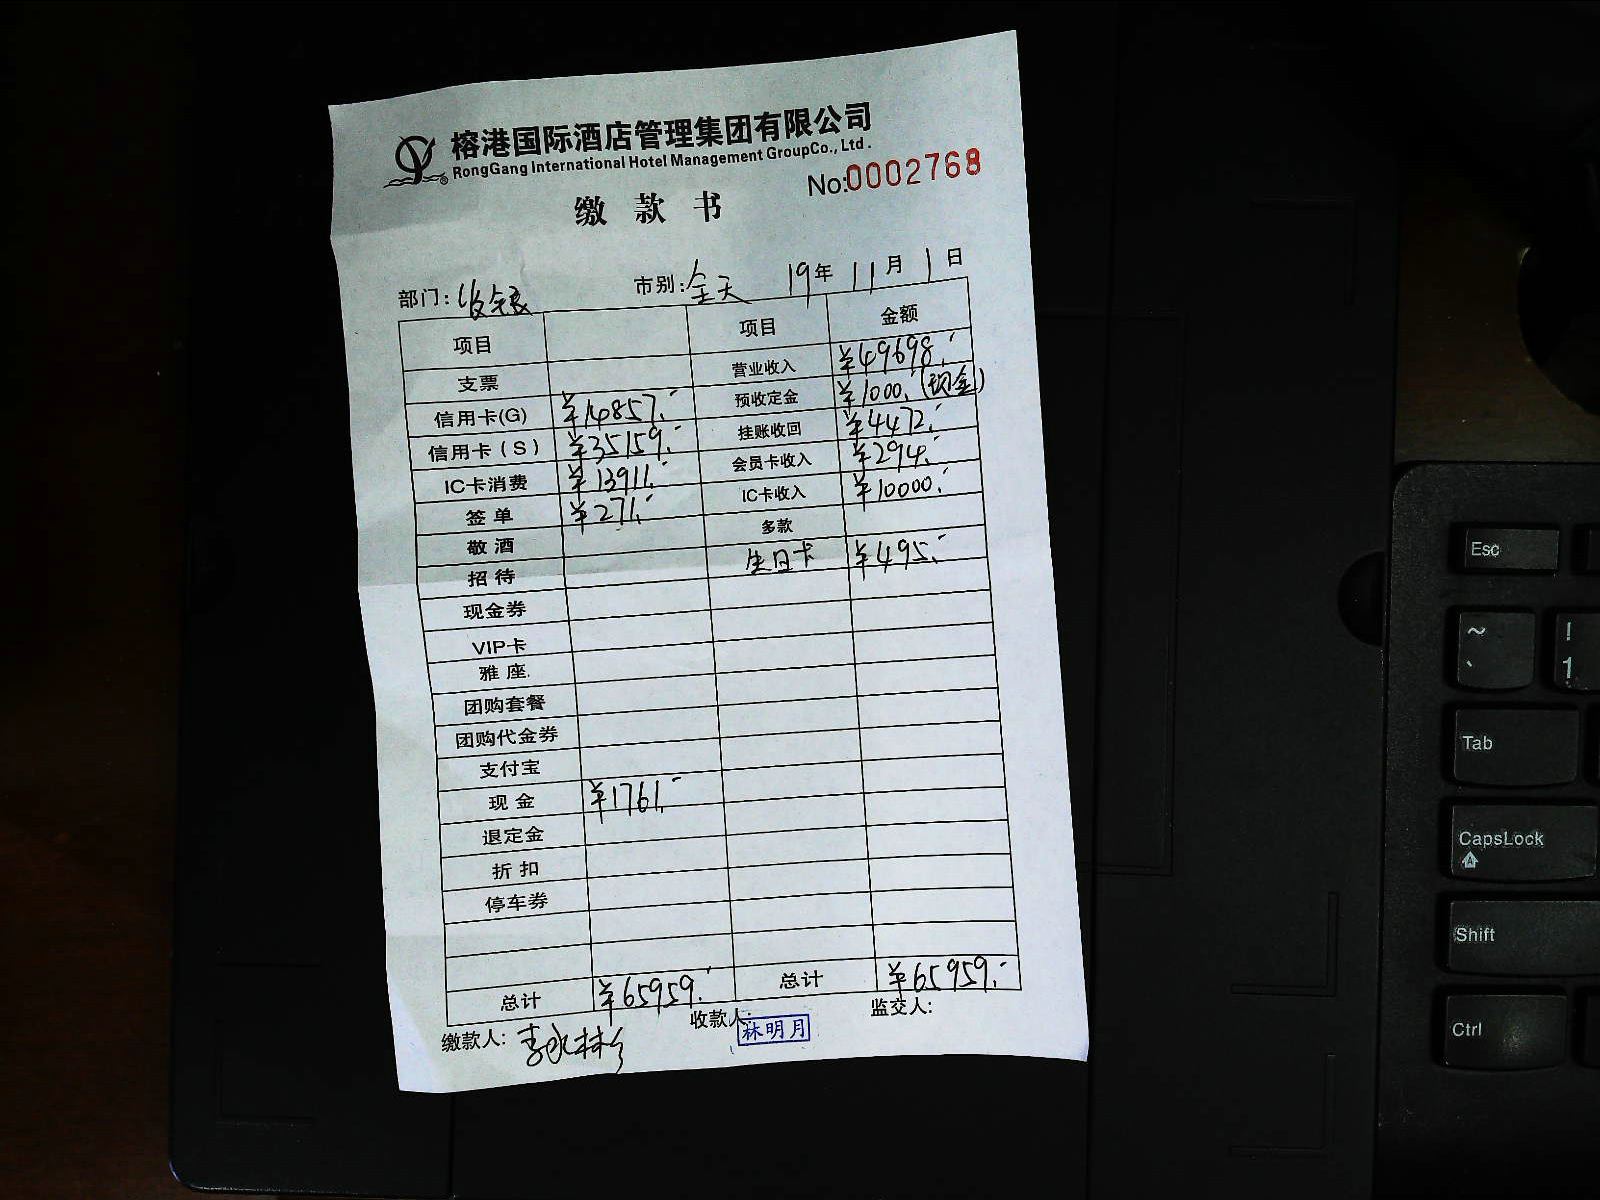 榕港国际酒店管理集团有限公司
RongGang International Hotel Management GroupCo., Ltd.
No:0002768
缴款书
部门:收银 市别:全天 19年11月1日
项目 项目 金额
支票 营业收入 ¥49698.-
信用卡(G) ¥14857.- 预收定金 ¥1000.(现金)
信用卡(S) ¥35159.- 挂账收回 ¥4472.-
IC卡消费 ¥13911.- 会员卡收入 ¥294.-
签单 ¥271.- IC卡收入 ¥10000.-
敬酒 多款
招待 生日卡 ¥495.-
现金券
VIP卡
雅座.
团购套餐
团购代金券
支付宝
现金 ¥1761.-
退定金
折扣
停车券
总计 ¥65959.- 总计 ¥65959.-
缴款人:李永彬 收款人:林明月 监交人:
Esc
~ !
` 1
Tab
CapsLock
Shift
Ctrl